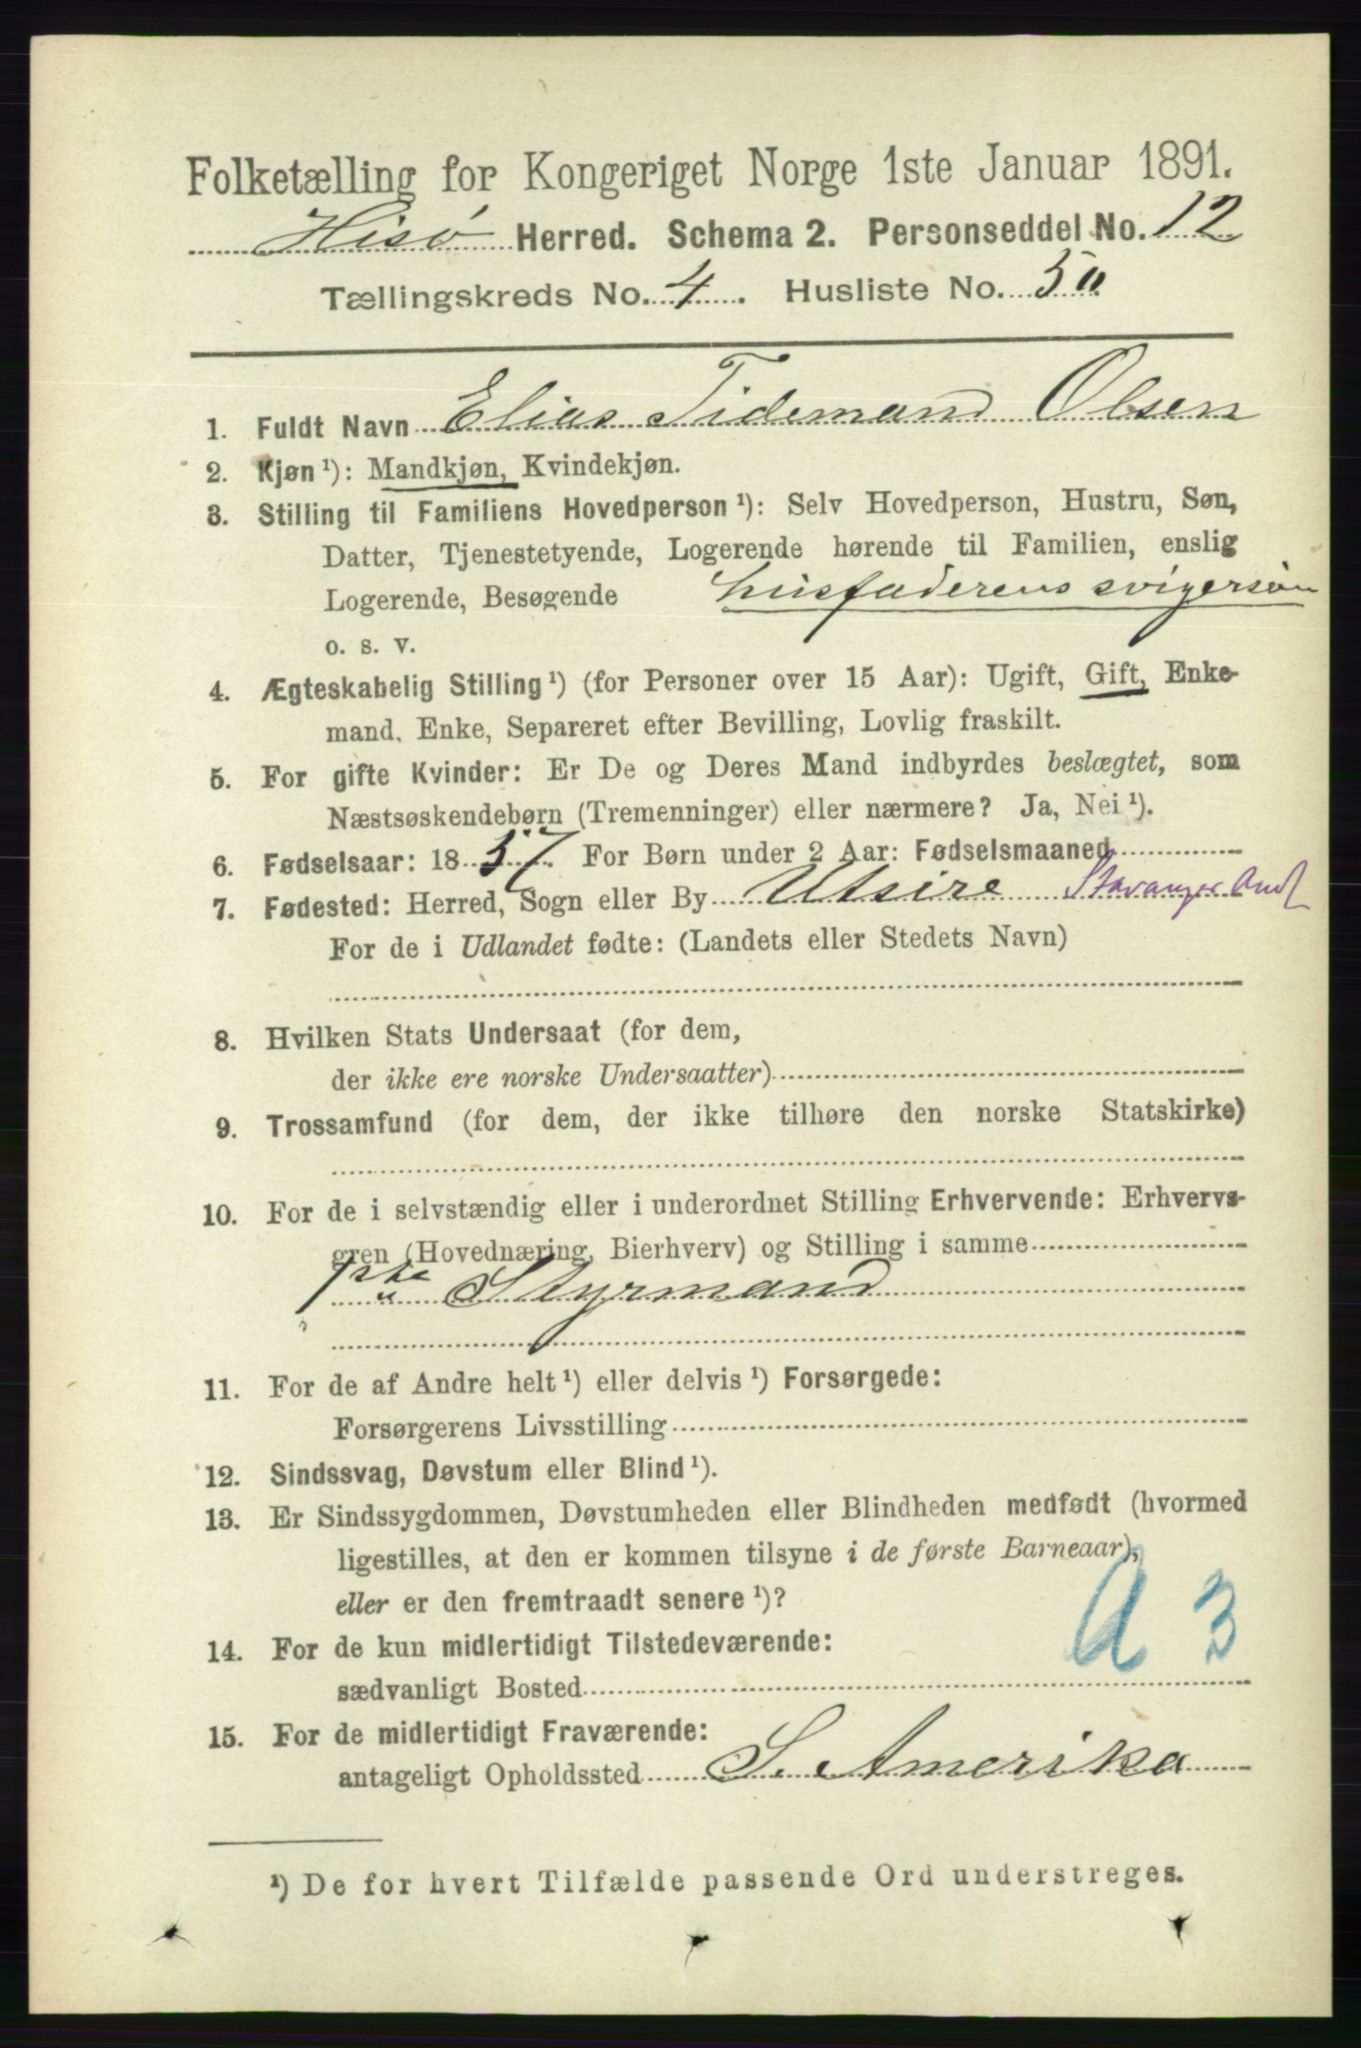 Folketælling for Kongeriget Norge 1ste Januar 1891.
Hisø Herred. Schema 2. Personseddel No. 12
Tællingskreds No. 4. Husliste No. 50
1. Fuldt Navn Elias Tidemand Olsen
2. Kjøn ¹): Mandkjøn, Kvindekjøn.
3. Stilling til Familiens Hovedperson ¹): Selv Hovedperson, Hustru, Søn,
Datter, Tjenestetyende, Logerende hørende til Familien, enslig
Logerende, Besøgende husfaderens svigersøn
o. s. v.
4. Ægteskabelig Stilling ¹) (for Personer over 15 Aar): Ugift, Gift, Enke-
mand, Enke, Separeret efter Bevilling, Lovlig fraskilt.
5. For gifte Kvinder: Er De og Deres Mand indbyrdes beslægtet, som
Næstsøskendebørn (Tremenninger) eller nærmere? Ja, Nei ¹).
6. Fødselsaar: 1857. For Børn under 2 Aar: Fødselsmaaned
7. Fødested: Herred, Sogn eller By Utsire Stavanger Amt
For de i Udlandet fødte: (Landets eller Stedets Navn)
8. Hvilken Stats Undersaat (for dem,
der ikke ere norske Undersaatter)
9. Trossamfund (for dem, der ikke tilhøre den norske Statskirke)
10. For de i selvstændig eller i underordnet Stilling Erhvervende: Erhvervs-
gren (Hovednæring, Bierhverv) og Stilling i samme
1ste Styrmand
11. For de af Andre helt ¹) eller delvis ¹) Forsørgede:
Forsørgerens Livsstilling
12. Sindssvag, Døvstum eller Blind ¹).
13. Er Sindssygdommen, Døvstumheden eller Blindheden medfødt (hvormed
ligestilles, at den er kommen tilsyne i de første Barneaar),
eller er den fremtraadt senere ¹)?
A 3
14. For de kun midlertidigt Tilstedeværende:
sædvanligt Bosted
15. For de midlertidigt Fraværende:
antageligt Opholdssted S. Amerika
¹) De for hvert Tilfælde passende Ord understreges.